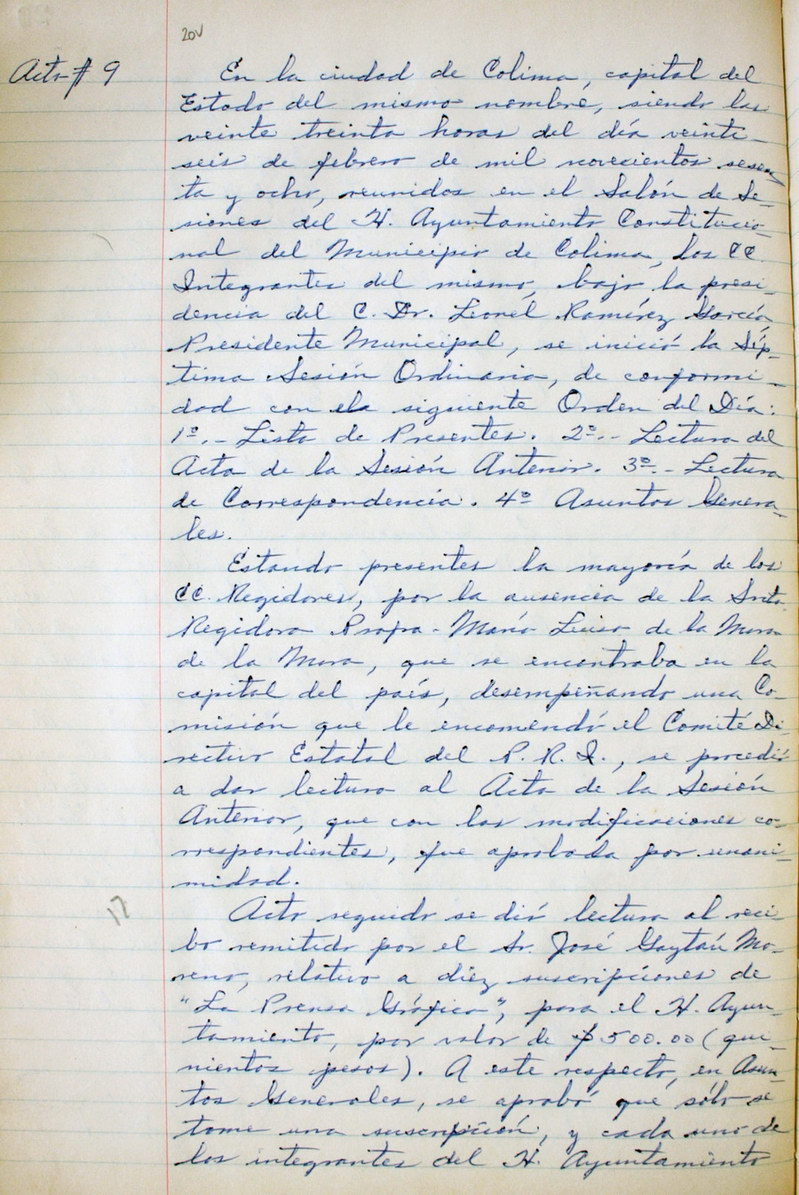 20v
Acta # 9
En la ciudad de Colima, capital del
Estado del mismo nombre, siendo las
veinte treinta horas del día veinti-
seis de febrero de mil novecientos sesen
ta y ocho, reunidos en el Salón de Se-
siones del H. Ayuntamiento Constitucio-
nal del Municipio de Colima, los CC.
Integrantes del mismo, bajo la presi-
dencia del C. Dr. Leonel Ramírez García,
Presidente Municipal, se inició la Sép-
tima Sesión Ordinaria, de conformi-
dad con la siguiente Orden del Día:
1º.- Lista de Presentes. 2º.- Lectura del
Acta de la Sesión Anterior. 3º.- Lectura
de Correspondencia. 4º Asuntos Genera-
les.
Estando presentes la mayoría de los
CC. Regidores, por la ausencia de la Srita.
Regidora Profra. María Luisa de la Mora
de la Mora, que se encontraba en la
capital del país, desempeñando una Co-
misión que le encomendó el Comité Di-
rectivo Estatal del P. R. I., se procedió
a dar lectura al Acta de la Sesión
Anterior, que con las modificaciones co-
rrespondientes, fue aprobada por unani-
midad.
17
Acto seguido se dió lectura al reci-
bo remitido por el Sr. José Gaytán Mo-
reno, relativo a diez suscripciones de
"La Prensa Gráfica", para el H. Ayun-
tamiento, por valor de $500.00 (qui-
nientos pesos). A este respecto, en Asun
tos Generales, se aprobó que sólo se
tome una suscripción, y cada uno de
los integrantes del H. Ayuntamiento